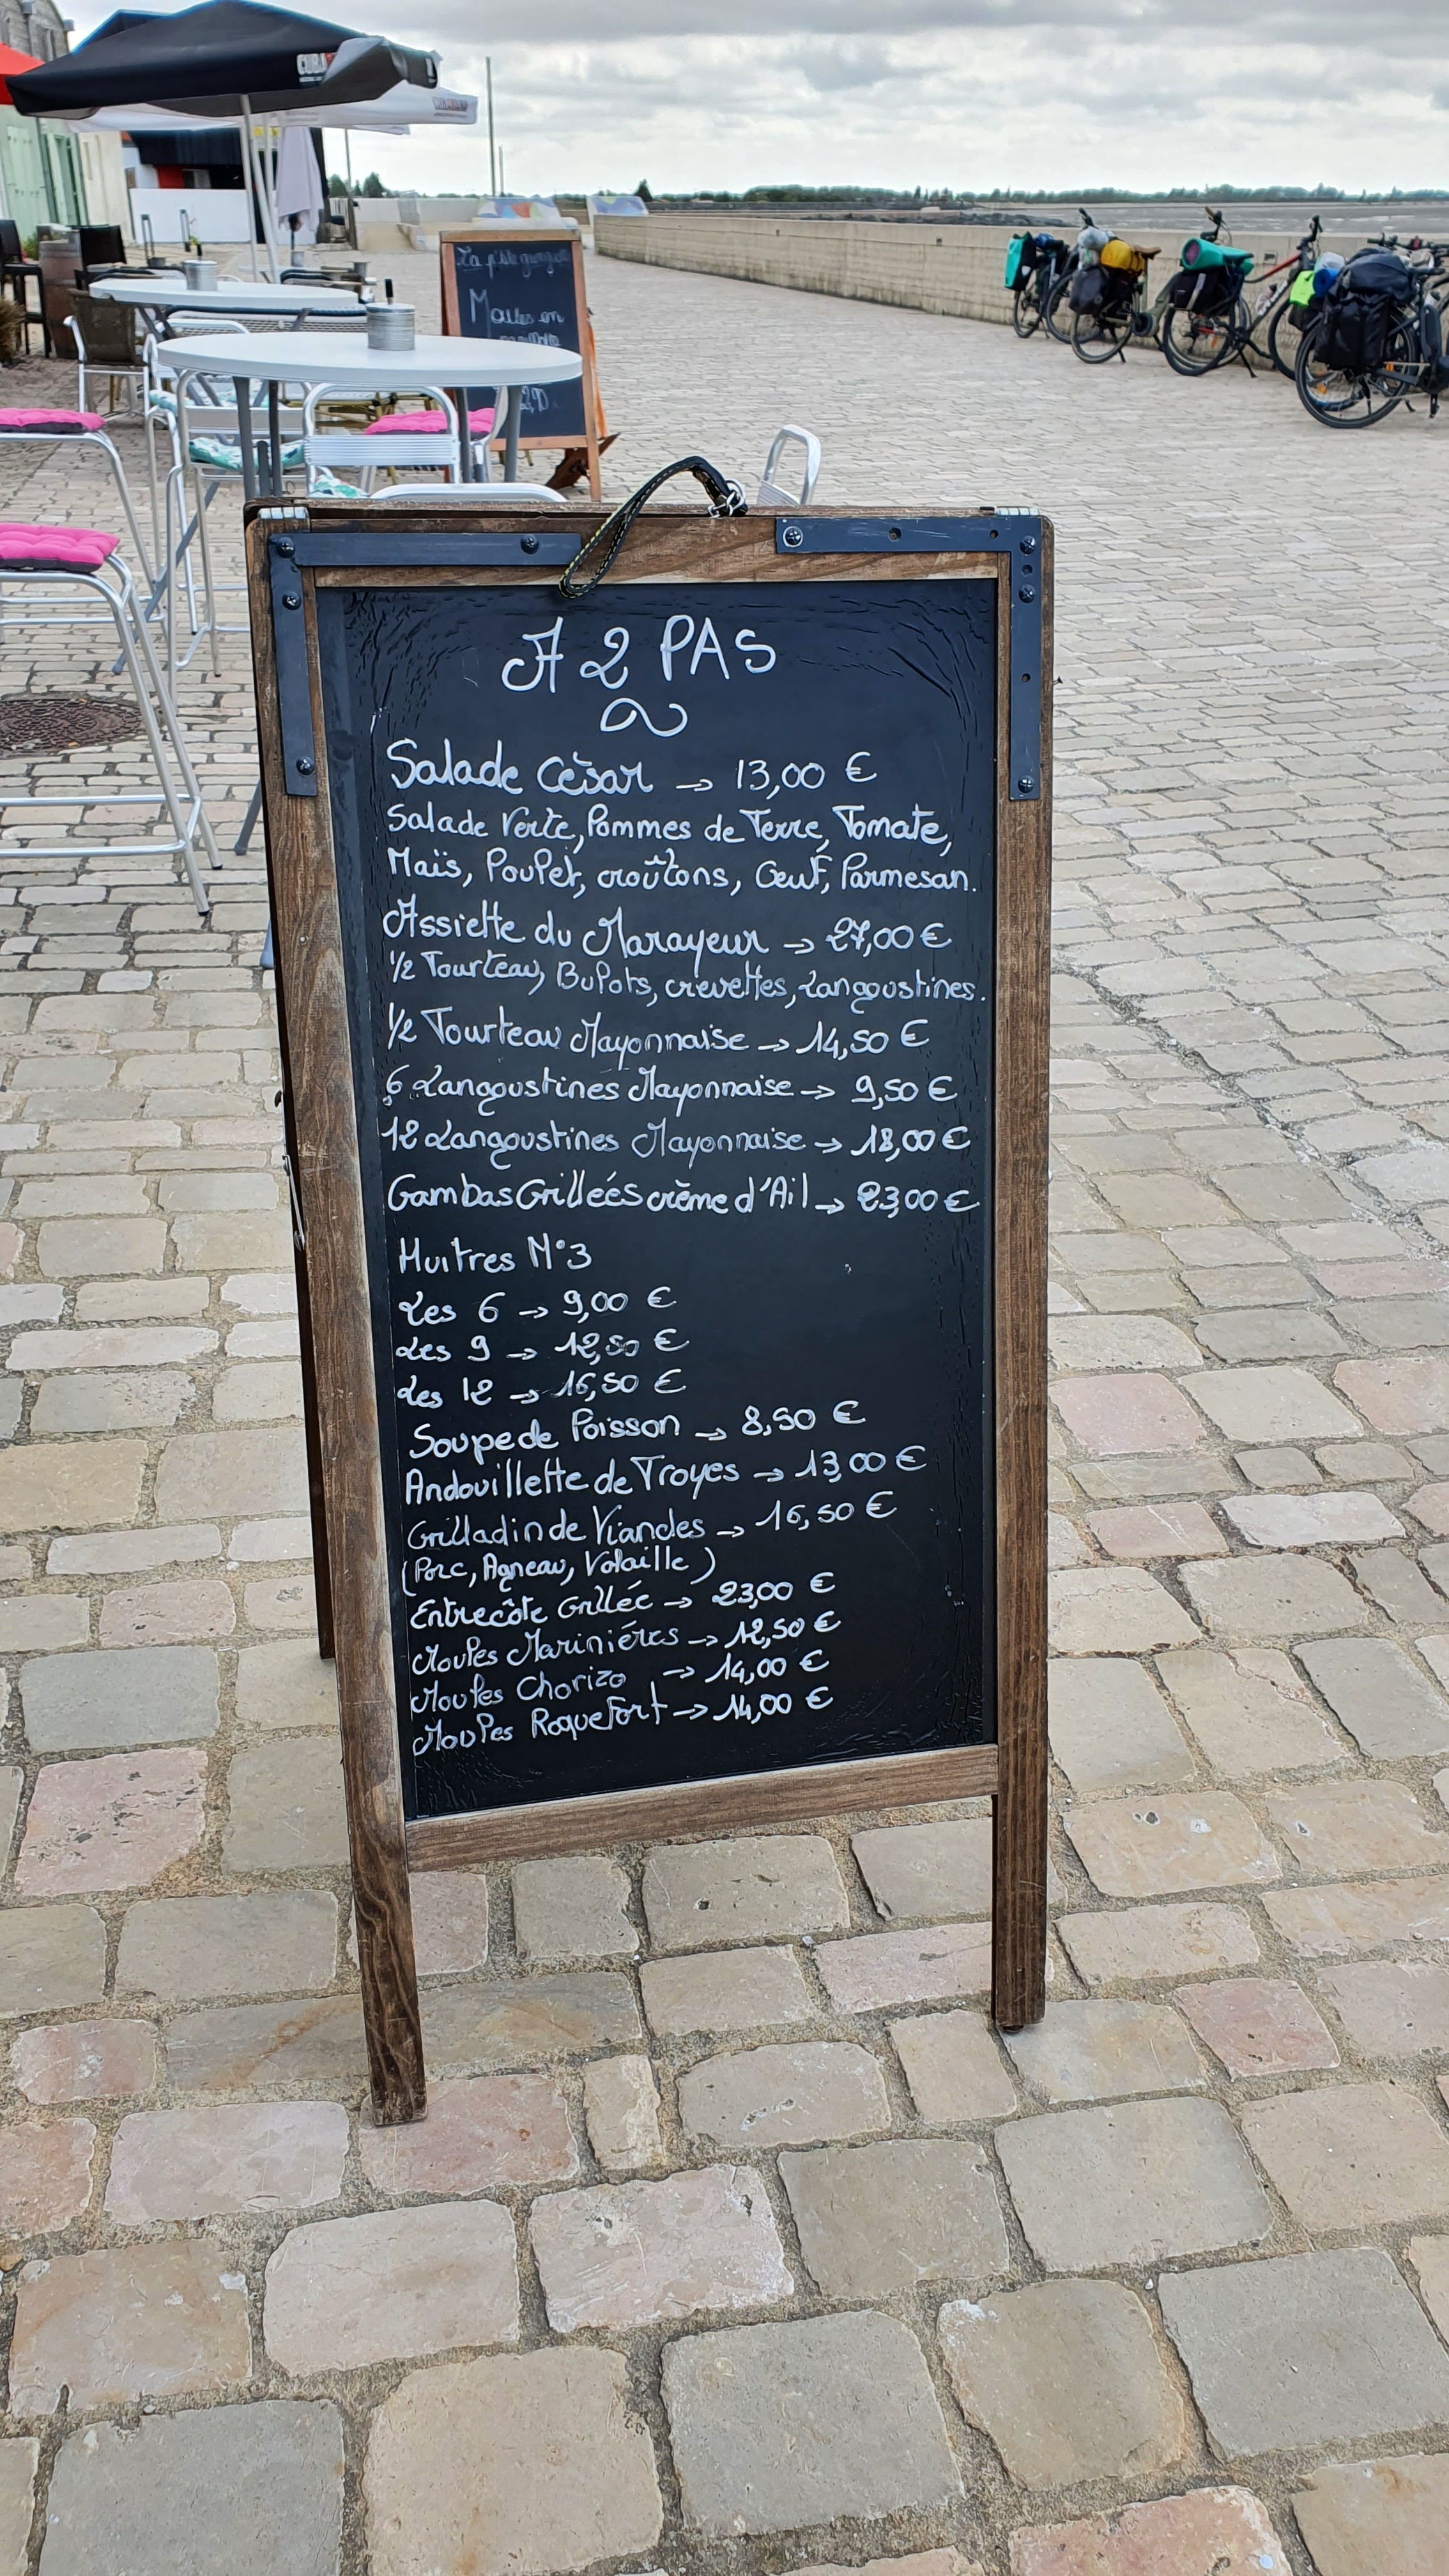 CUBA
La p'tite
Moules en
A 2 PAS
Salade Cèsar → 13,00 €
Salade Verte, Pommes de Terre, Tomate,
Maïs, Poulet, croûtons, Oeuf, Parmesan.
Assiette du Marayeur → 27,00 €
1/2 Tourteau, Bulots, crevettes, Langoustines.
1/2 Tourteau Mayonnaise → 14,50 €
6 Langoustines Mayonnaise → 9,50 €
12 Langoustines Mayonnaise → 18,00 €
Gambas Grilleés crème d'Ail → 23,00 €
Huitres N°3
Les 6 → 9,00 €
Les 9 → 12,50 €
Les 12 → 16,50 €
Soupe de Poisson → 8,50 €
Andouillette de Troyes → 13,00 €
Grilladin de Viandes → 16,50 €
(Porc, Agneau, Volaille)
Entrecôte Grillée → 23,00 €
Moules Mariniéres → 12,50 €
Moules Chorizo → 14,00 €
Moules Roquefort → 14,00 €